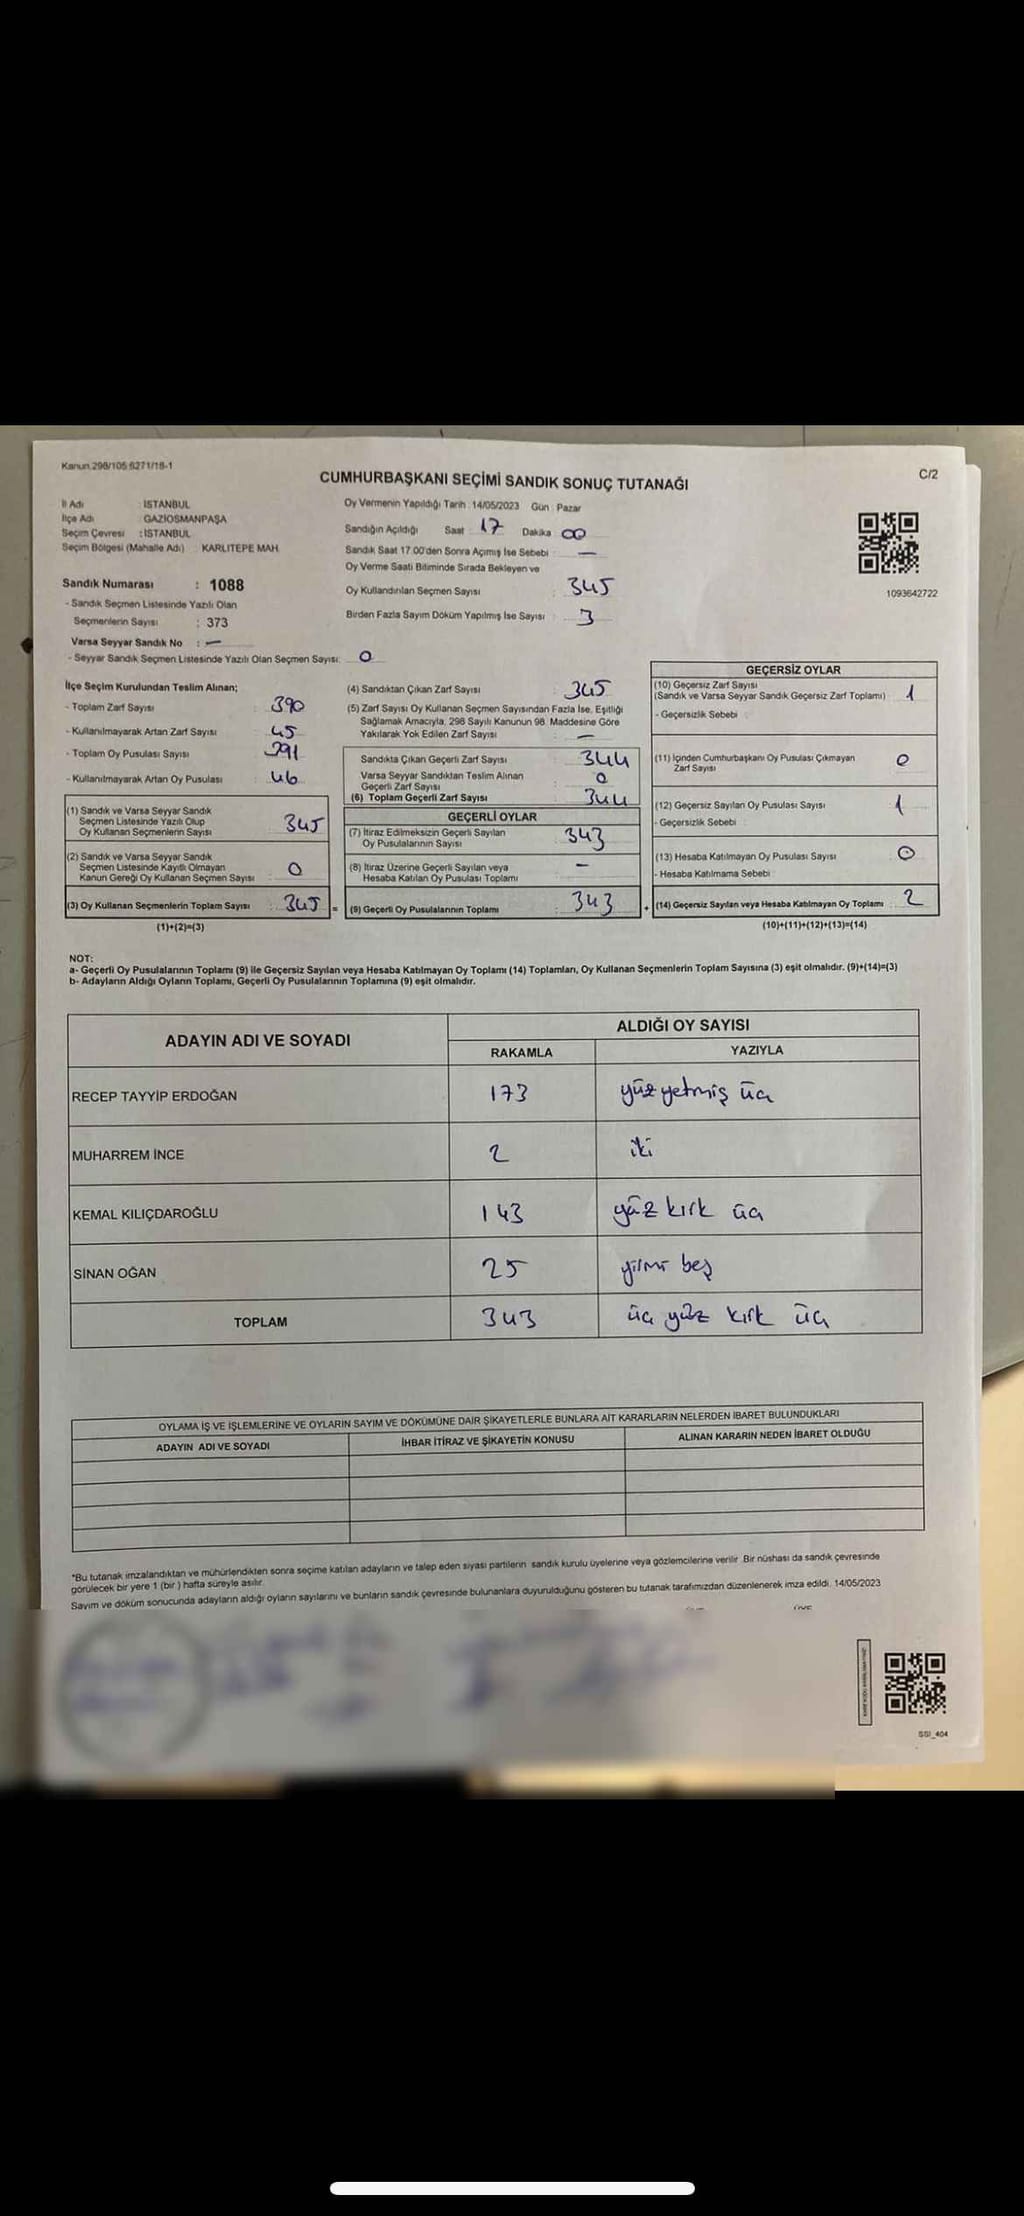 Kanun 298/105 6271/18-1
C/2
CUMHURBAŞKANI SEÇİMİ SANDIK SONUÇ TUTANAĞI
İl Adı : İSTANBUL
İlçe Adı : GAZİOSMANPAŞA
Seçim Çevresi : İSTANBUL
Seçim Bölgesi (Mahalle Adı) : KARLITEPE MAH.
Oy Vermenin Yapıldığı Tarih : 14/05/2023 Gün : Pazar
Sandığın Açıldığı Saat 17 Dakika 00
Sandık Saat 17.00'den Sonra Açımış İse Sebebi : —
Oy Verme Saati Bitiminde Sırada Bekleyen ve
Oy Kullandırılan Seçmen Sayısı : 345
Birden Fazla Sayım Döküm Yapılmış İse Sayısı : 3
1093642722
Sandık Numarası : 1088
- Sandık Seçmen Listesinde Yazılı Olan
Seçmenlerin Sayısı : 373
Varsa Seyyar Sandık No : —
- Seyyar Sandık Seçmen Listesinde Yazılı Olan Seçmen Sayısı: 0
İlçe Seçim Kurulundan Teslim Alınan;
- Toplam Zarf Sayısı : 390
- Kullanılmayarak Artan Zarf Sayısı : 45
- Toplam Oy Pusulası Sayısı : 391
- Kullanılmayarak Artan Oy Pusulası : 46
(1) Sandık ve Varsa Seyyar Sandık
Seçmen Listesinde Yazılı Olup
Oy Kullanan Seçmenlerin Sayısı : 345
(2) Sandık ve Varsa Seyyar Sandık
Seçmen Listesinde Kayıtlı Olmayan
Kanun Gereği Oy Kullanan Seçmen Sayısı : 0
(3) Oy Kullanan Seçmenlerin Toplam Sayısı : 345 =
(1)+(2)=(3)
(4) Sandıktan Çıkan Zarf Sayısı : 345
(5) Zarf Sayısı Oy Kullanan Seçmen Sayısından Fazla İse, Eşitliği
Sağlamak Amacıyla, 298 Sayılı Kanunun 98. Maddesine Göre
Yakılarak Yok Edilen Zarf Sayısı : —
Sandıkta Çıkan Geçerli Zarf Sayısı : 344
Varsa Seyyar Sandıktan Teslim Alınan
Geçerli Zarf Sayısı : 0
(6) Toplam Geçerli Zarf Sayısı : 344
GEÇERLİ OYLAR
(7) İtiraz Edilmeksizin Geçerli Sayılan
Oy Pusulalarının Sayısı : 343
(8) İtiraz Üzerine Geçerli Sayılan veya
Hesaba Katılan Oy Pusulası Toplamı : —
(9) Geçerli Oy Pusulalarının Toplamı : 343 +
GEÇERSİZ OYLAR
(10) Geçersiz Zarf Sayısı
(Sandık ve Varsa Seyyar Sandık Geçersiz Zarf Toplamı) : 1
- Geçersizlik Sebebi :
(11) İçinden Cumhurbaşkanı Oy Pusulası Çıkmayan
Zarf Sayısı : 0
(12) Geçersiz Sayılan Oy Pusulası Sayısı : 1
- Geçersizlik Sebebi :
(13) Hesaba Katılmayan Oy Pusulası Sayısı : 0
- Hesaba Katılmama Sebebi :
(14) Geçersiz Sayılan veya Hesaba Katılmayan Oy Toplamı : 2
(10)+(11)+(12)+(13)=(14)
NOT:
a- Geçerli Oy Pusulalarının Toplamı (9) ile Geçersiz Sayılan veya Hesaba Katılmayan Oy Toplamı (14) Toplamları, Oy Kullanan Seçmenlerin Toplam Sayısına (3) eşit olmalıdır. (9)+(14)=(3)
b- Adayların Aldığı Oyların Toplamı, Geçerli Oy Pusulalarının Toplamına (9) eşit olmalıdır.
ADAYIN ADI VE SOYADI
ALDIĞI OY SAYISI
RAKAMLA YAZIYLA
RECEP TAYYİP ERDOĞAN 173 yüz yetmiş üç
MUHARREM İNCE 2 iki
KEMAL KILIÇDAROĞLU 143 yüz kırk üç
SİNAN OĞAN 25 yirmi beş
TOPLAM 343 üç yüz kırk üç
OYLAMA İŞ VE İŞLEMLERİNE VE OYLARIN SAYIM VE DÖKÜMÜNE DAİR ŞİKAYETLERLE BUNLARA AİT KARARLARIN NELERDEN İBARET BULUNDUKLARI
ADAYIN ADI VE SOYADI İHBAR İTİRAZ VE ŞİKAYETİN KONUSU ALINAN KARARIN NEDEN İBARET OLDUĞU
*Bu tutanak imzalandıktan ve mühürlendikten sonra seçime katılan adayların ve talep eden siyasi partilerin sandık kurulu üyelerine veya gözlemcilerine verilir. Bir nüshası da sandık çevresinde
görülecek bir yere 1 (bir ) hafta süreyle asılır.
Sayım ve döküm sonucunda adayların aldığı oyların sayılarını ve bunların sandık çevresinde bulunanlara duyurulduğunu gösteren bu tutanak tarafımızdan düzenlenerek imza edildi. 14/05/2023
SSI_404